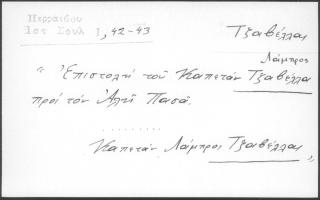 Περραιβου
Ιστ Σουλ 1, 42-43
Τζαβέλλαι
Λάμπρος
"Ἐπιστολὴ τοῦ Καπετάν Τζαβέλλα
πρὸς τὸν Ἀλῆ Πασᾶ.
.........
Καπετάν Λάμπρος Τζαβέλλας"